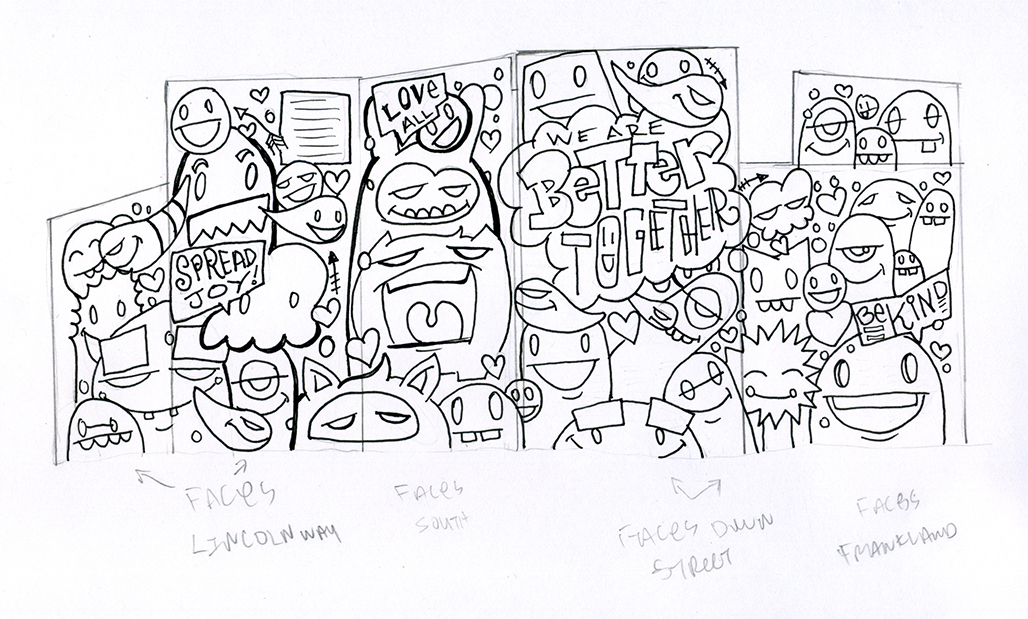 LOVE
ALL
WE ARE
BeTTer
TOGETHER
SPREAD
JOY!
Be KIND
FACES
LINCOLNWAY
FACES
SOUTH
FACES DOWN
STREET
FACES
FRANKLAND